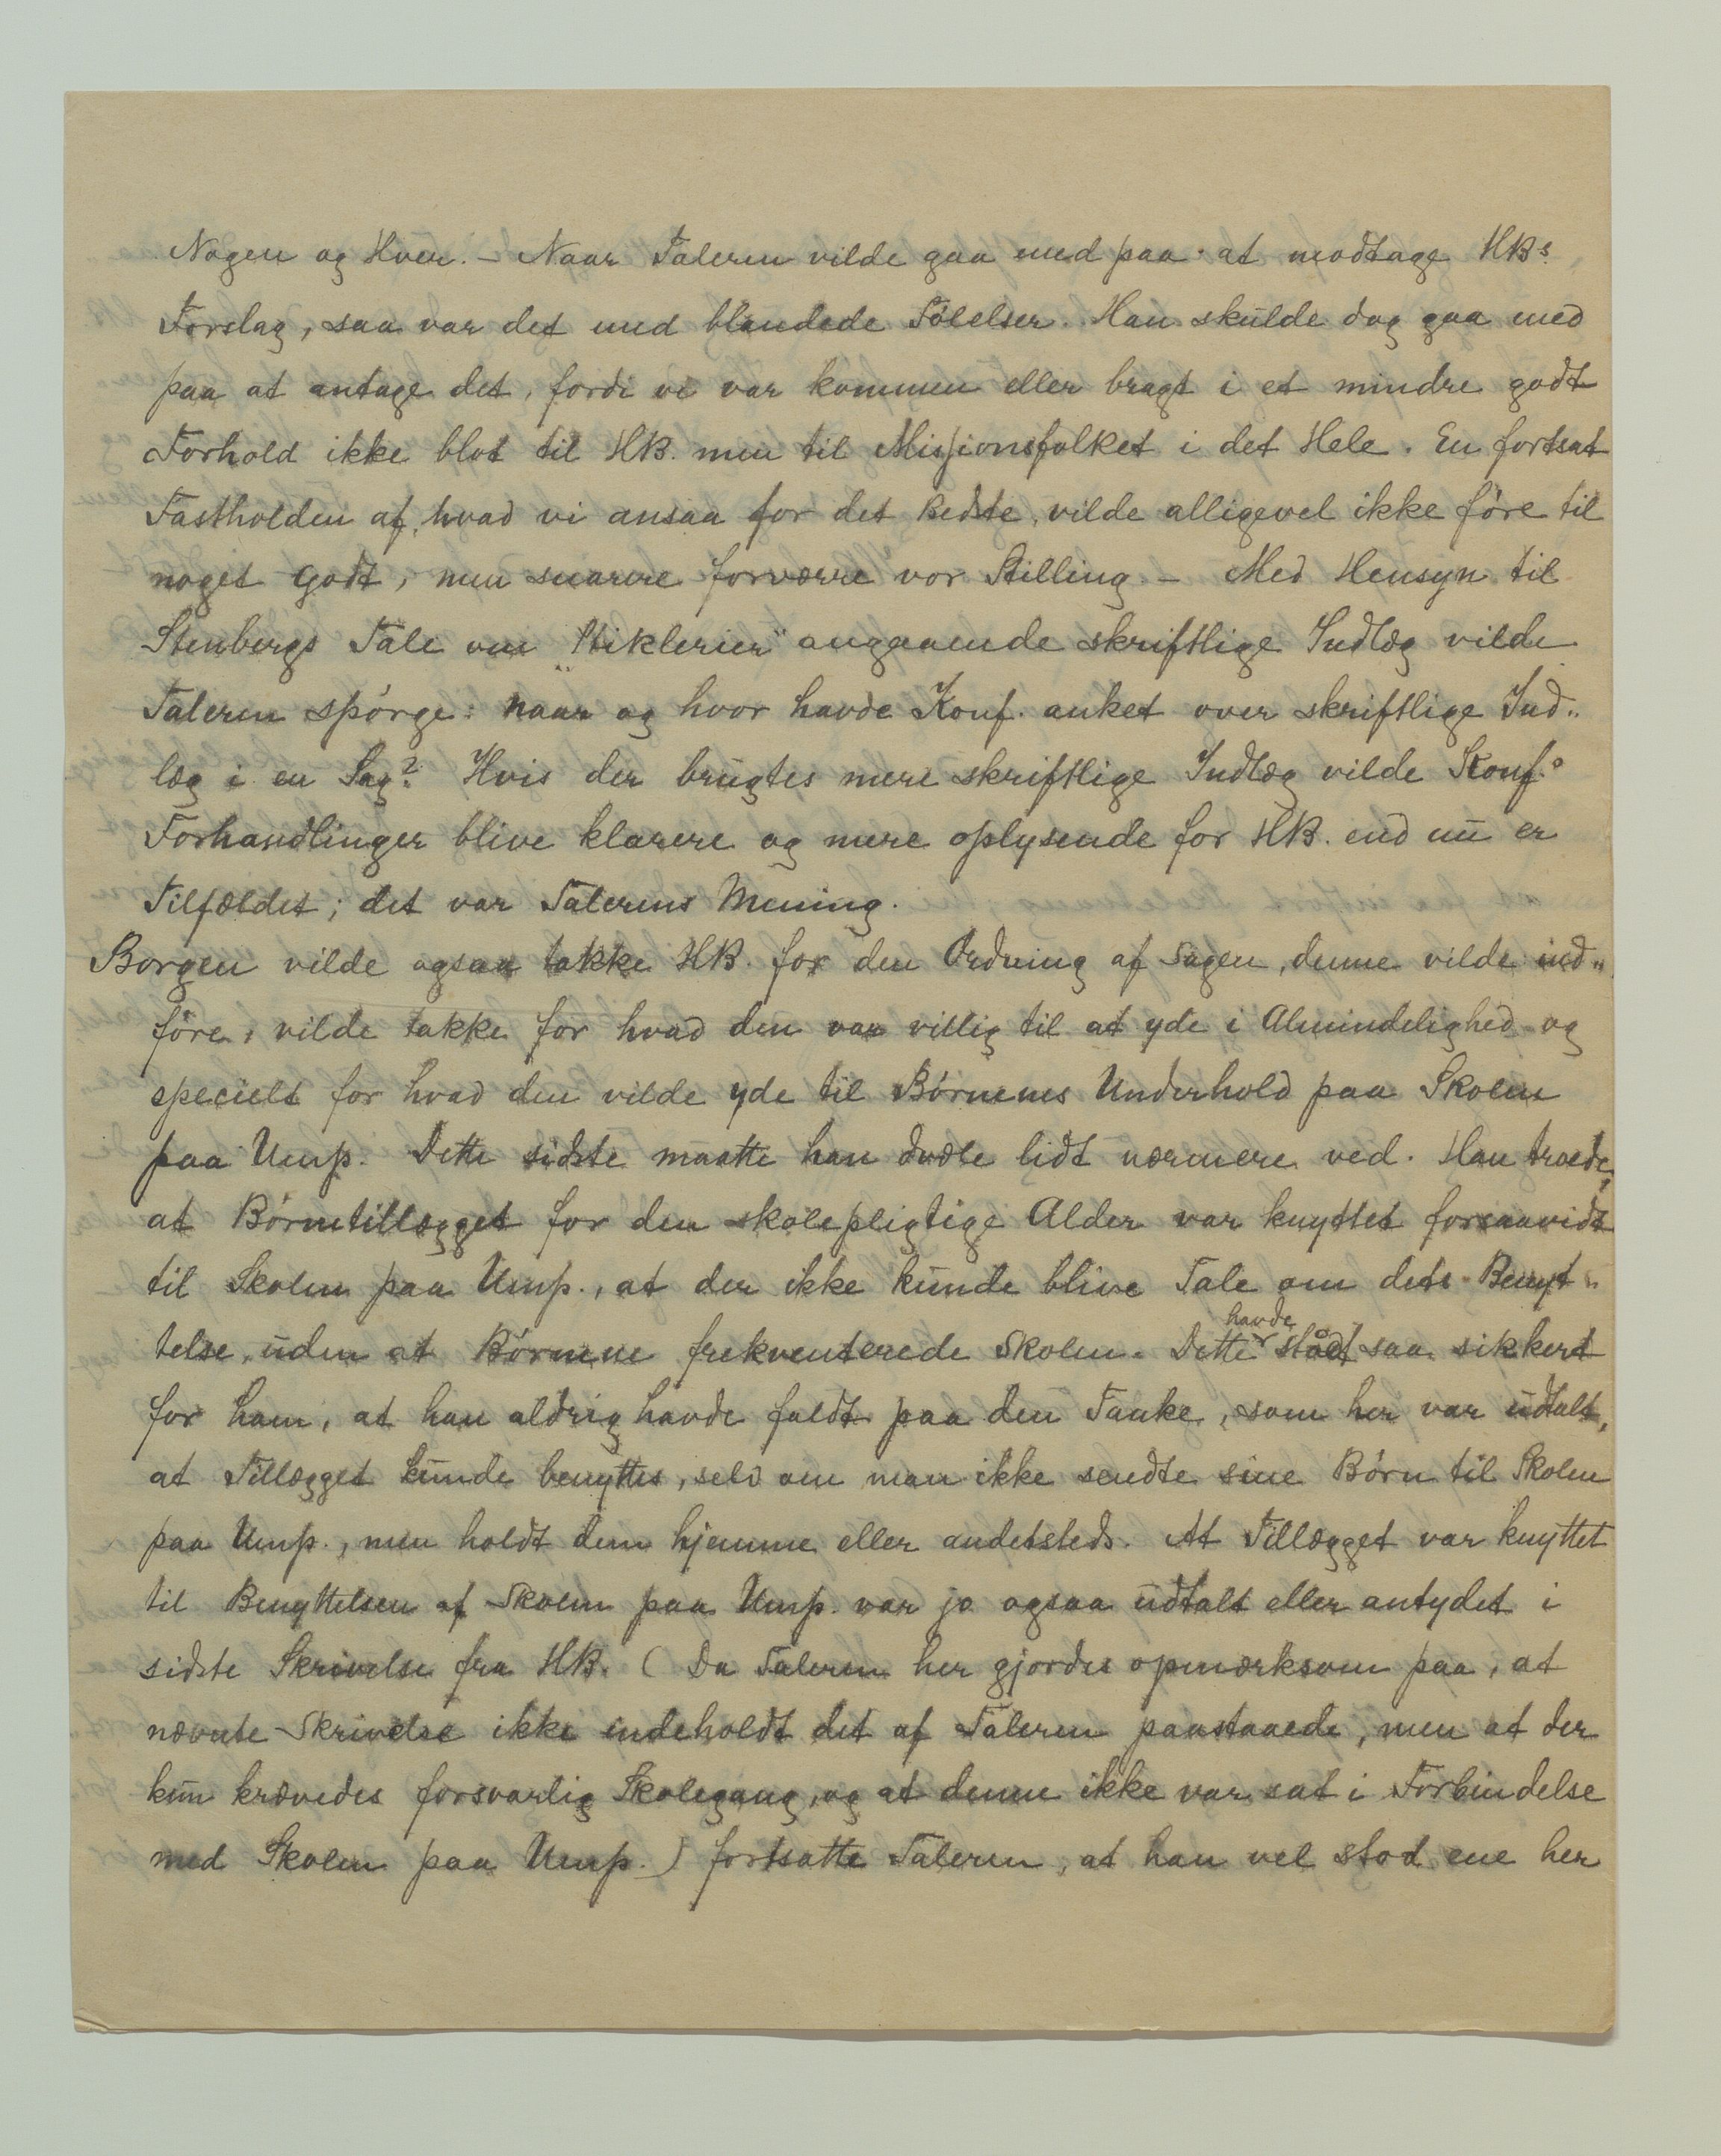 Nogen og Hver. – Naar Taleren vilde gaa med paa at modtage HBs
Forslag, saa var det med blandede Fölelser. Han skulde dog gaa med
paa at antage det, fordi vi var kommen eller bragt i et mindre godt
Forhold ikke blot til HB. men til Missionsfolket i det Hele. En fortsat
Fastholden af, hvad vi ansaa for det Bedste, vilde alligevel ikke före til
noget Godt, men snarere forværre vor Stilling – Med Hensyn til
Stenbergs Tale om „Stiklerier" angaaende skriftlige Indlæg vilde
Taleren spörge: naar og hvor havde Konf. anket over skriftlige Ind„
læg i en Sag? Hvis der brugtes mere skriftlige Indlæg vilde Konf.s
Forhandlinger blive klarere og mere oplysende for HB. end nu er
Tilfældet; det var Talerens Mening.
Borgen vilde ogsaa takke HB. for den Ordning af Sagen, denne vilde ind„
före, vilde takke for hvad den var villig til at yde i Almindelighed og
specielt for hvad den vilde yde til Börnenes Underhold paa Skolen
paa Ump. Dette sidste maatte han dvæle lidt nærmere ved. Han troede,
at Börnetillægget for den skolepligtige Alder var knyttet forsaavidt
til Skolen paa Ump., at der ikke kunde blive Tale om dets Benyt„
telse, uden at Börnene frekventerede Skolen. Dette havde stået saa sikkert
for ham, at han aldrig havde faldt paa den Tanke, som her var udtalt,
at Tillægget kunde benyttes, selv om man ikke sendte sine Börn til Skolen
paa Ump., men holdt dem hjemme eller andetsteds. At Tillægget var knyttet
til Benyttelsen af Skolen paa Ump. var jo ogsaa udtalt eller antydet i
sidste Skrivelse fra HB. (Da Taleren her gjordes opmærksom paa, at
nævnte Skrivelse ikke indeholdt det af Taleren paastaaede, men at der
kun krævedes forsvarlig Skolegang, og at denne ikke var sat i Forbindelse
med Skolen paa Ump.) fortsatte Taleren, at han vel stod ene her